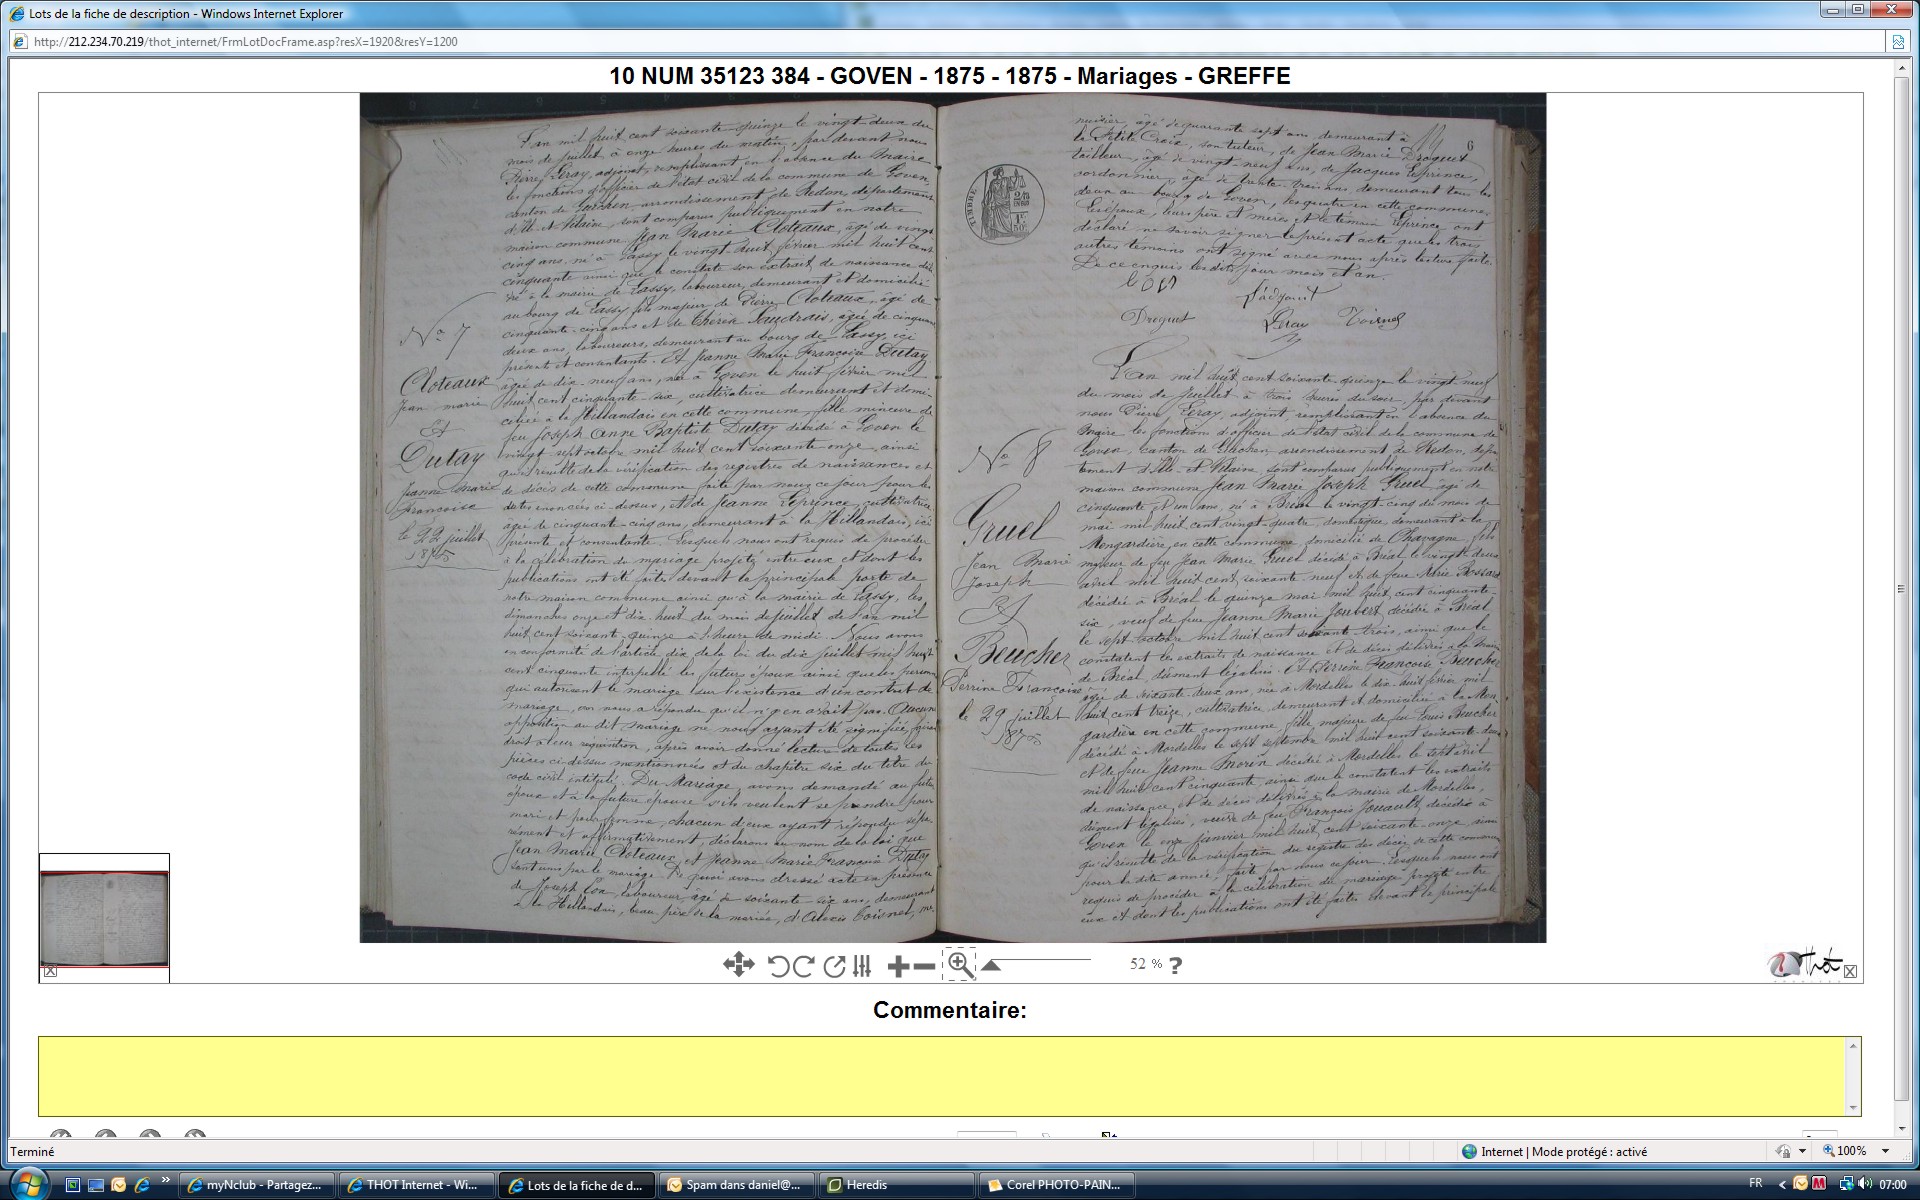 Lots de la fiche de description - Windows Internet Explorer
http://212.234.70.219/thot_internet/FrmLotDocFrame.asp?resX=1920&resY=1200
10 NUM 35123 384 - GOVEN - 1875 - 1875 - Mariages - GREFFE
L'an mil huit cent soixante-quinze le vingt deux du
mois de juillet, à onze heures du matin, par devant nous
Pierre Leray, adjoint, remplissant en l'absence du Maire
les fonctions d'officier de l'état civil de la commune de Goven,
canton de Guichen, arrondissement de Redon, département
d'Ille-et-Vilaine, sont comparus publiquement en notre
maison commune Jean Marie Cloteaux, âgé de vingt
cinq ans, né à Lassy le vingt huit février mil huit cent
cinquante ainsi que le constate son extrait de naissance dé-
livré à la mairie de Lassy, laboureur, demeurant et domicilié
au bourg de Lassy, fils majeur de Pierre Cloteaux, âgé de
cinquante-cinq ans et de Thérèse âgée de cinquante
deux ans, laboureurs, demeurant au bourg de Lassy, ici
présents et consentants. Et Jeanne Marie Françoise Dutay
âgée de dix-neuf ans, née à Goven le huit février mil
huit cent cinquante-six, cultivatrice demeurant et domi-
ciliée à la Hillandais en cette commune, fille mineure de
feu Joseph Anne Baptiste Dutay décédé à Goven le
vingt sept octobre mil huit cent soixante onze, ainsi
qu'il résulte de la vérification des registres de naissances et
de décès de cette commune faite par nous ce jour pour les
dates énoncées ci-dessus, et de Jeanne Leprince, cultivatrice
âgée de cinquante-cinq ans, demeurant à la Hillandais, ici
présente et consentante. Lesquels nous ont requis de procéder
à la célébration du mariage projeté entre eux et dont les
publications ont été faites devant la principale porte de
notre maison commune ainsi qu'à la mairie de Lassy, les
dimanches onze et dix huit du mois de juillet de l'an mil
huit cent soixante-quinze à l'heure de midi. Nous avons
en conformité de l'article dix de la loi du dix juillet mil huit
cent cinquante interpellé les futurs époux ainsi que les personnes
qui autorisent le mariage sur l'existence d'un contrat de
mariage, on nous a répondu qu'il n'y en avait pas. Aucune
opposition au dit mariage ne nous ayant été signifiée, faisant
droit à leur réquisition, après avoir donné lecture de toutes les
pièces ci-dessus mentionnées et du chapitre six du titre du
code civil intitulé: Du Mariage, avons demandé au futur
époux et à la future épouse s'ils veulent se prendre pour
mari et pour femme, chacun d'eux ayant répondu sépa-
rément et affirmativement, déclarons au nom de la loi que
Jean Marie Cloteaux et Jeanne Marie Françoise Dutay
sont unis par le mariage. De quoi avons dressé acte en présence
de Joseph laboureur, âgé de soixante six ans, demeurant
à la Hillandais, beau père de la mariée, d'Alexis Coisnel, me-
No 7
Cloteaux
Jean marie
Et
Dutay
Jeanne Marie
Francoise
le 22 juillet
1875
nuisier, âgé de quarante sept ans, demeurant à
la Petite Croix, son tuteur, de Jean Marie Droguet
tailleur, âgé de vingt-neuf ans, de Jacques Leprince,
cordonnier, âgé de trente-trois ans, demeurant tous les
deux au bourg de Goven, lesquatre en cette commune.
Les époux, leurs père et mères et le témoin Leprince ont
déclaré ne savoir signer le présent acte que les trois
autres témoins ont signé avec nous après lecture faite.
De ce enquis les dits jour mois et an.
6
TIMBRE
l'adjoint
Droguet
Leray
Coisnel
No 8
Gruel
Jean Marie
Joseph
Et
Beucher
Perrine Françoise
le 29 juillet
1875
L'an mil huit cent soixante quinze le vingt neuf
du mois de Juillet à trois heures du soir, par devant
nous Pierre Leray, adjoint, remplissant en l'absence du
Maire les fonctions d'officier de l'état civil de la commune de
Goven, canton de Guichen, arrondissement de Redon, dépar-
tement d'Ille-et-Vilaine, sont comparus publiquement en notre
maison commune Jean Marie Joseph Gruel, âgé de
cinquante et un ans, né à Bréal le vingt cinq du mois de
mai mil huit cent vingt-quatre, domestique, demeurant à la
Mongardière, en cette commune, domicilié de Chavagne, fils
majeur de feu Jean Marie Gruel décédé à Bréal le vingt deux
avril mil huit cent soixante neuf et de feue Marie Bossard
décédée à Bréal le quinze mai mil huit cent cinquante-
six, veuf de feue Jeanne Marie Joubert, décédée à Bréal
le sept octobre mil huit cent soixante trois, ainsi que le
constatent les extraits de naissance et de décès délivrés à la Mairie
de Bréal, dûment légalisés. Et Perrine Françoise Beucher
âgée de soixante deux ans, née à Mordelles le dix-huit février mil
huit cent treize, cultivatrice, demeurant et domiciliée à la Mon-
gardière en cette commune, fille majeure de feu Louis Beucher
décédé à Mordelles le sept septembre mil huit cent soixante-deux
et de feue Jeanne Morin décédée à Mordelles le sept avril
mil huit cent cinquante, ainsi que le constatent les extraits
de naissance et de décès délivrés à la mairie de Mordelles,
dûment légalisés, veuve de feu François Jouault, décédé à
Goven le onze janvier mil huit cent soixante-onze, ainsi
qu'il résulte de la vérification du registre des décès de cette commune
pour la dite année, faite par nous ce jour. Lesquels nous ont
requis de procéder à la célébration du mariage projeté entre
eux et dont les publications ont été faites devant la principale
52 % ?
thot
Commentaire:
Terminé
Internet | Mode protégé : activé
100%
myNclub - Partagez...
THOT Internet - Wi...
Lots de la fiche de d...
Spam dans daniel@...
Heredis
Corel PHOTO-PAIN...
FR
07:00